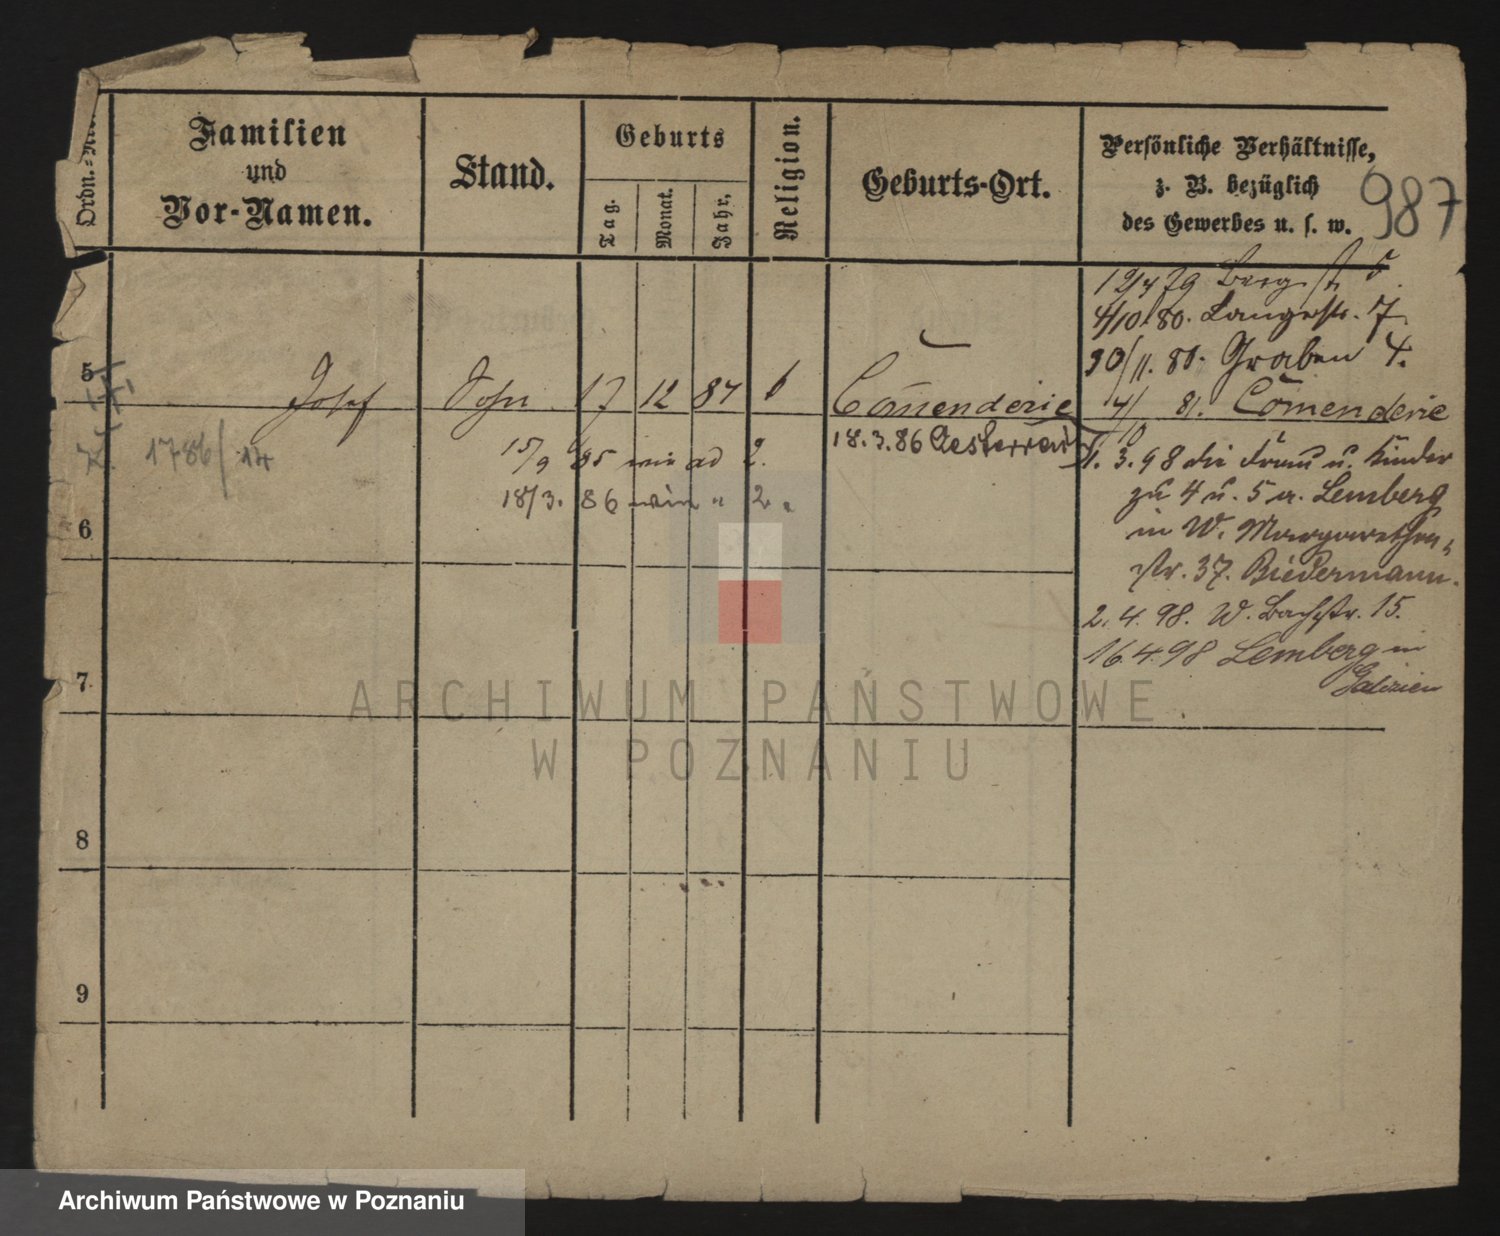 Ordn.-Nro.
Familien
und
Vor-Namen.
Stand.
Geburts
Tag.
Monat.
Jahr.
Religion.
Geburts-Ort.
Persönliche Verhältnisse,
z. B. bezüglich
des Gewerbes u. s. w.
987
12/4 79 Bergstr. 5.
4/10. 80. Langestr. 7.
30/11. 80. Graben 4.
5 Josef Sohn 17 12 87 Com̄enderie
4/10 81. Com̄enderie
1786/14
15/9 85 wie ad 2.
18.3.86 Oesterreich
18/3. 86 wie " 2.
1. 3. 98 die Frau u. Kinder
zu 4 u. 5 a. Lemberg
in W. Margarethen-
str. 37. Biedermann.
2. 4. 98. W. Bachstr. 15.
16.4.98 Lemberg in
Galizien
6
7
8
9
ARCHIWUM PAŃSTWOWE
W POZNANIU
Archiwum Państwowe w Poznaniu